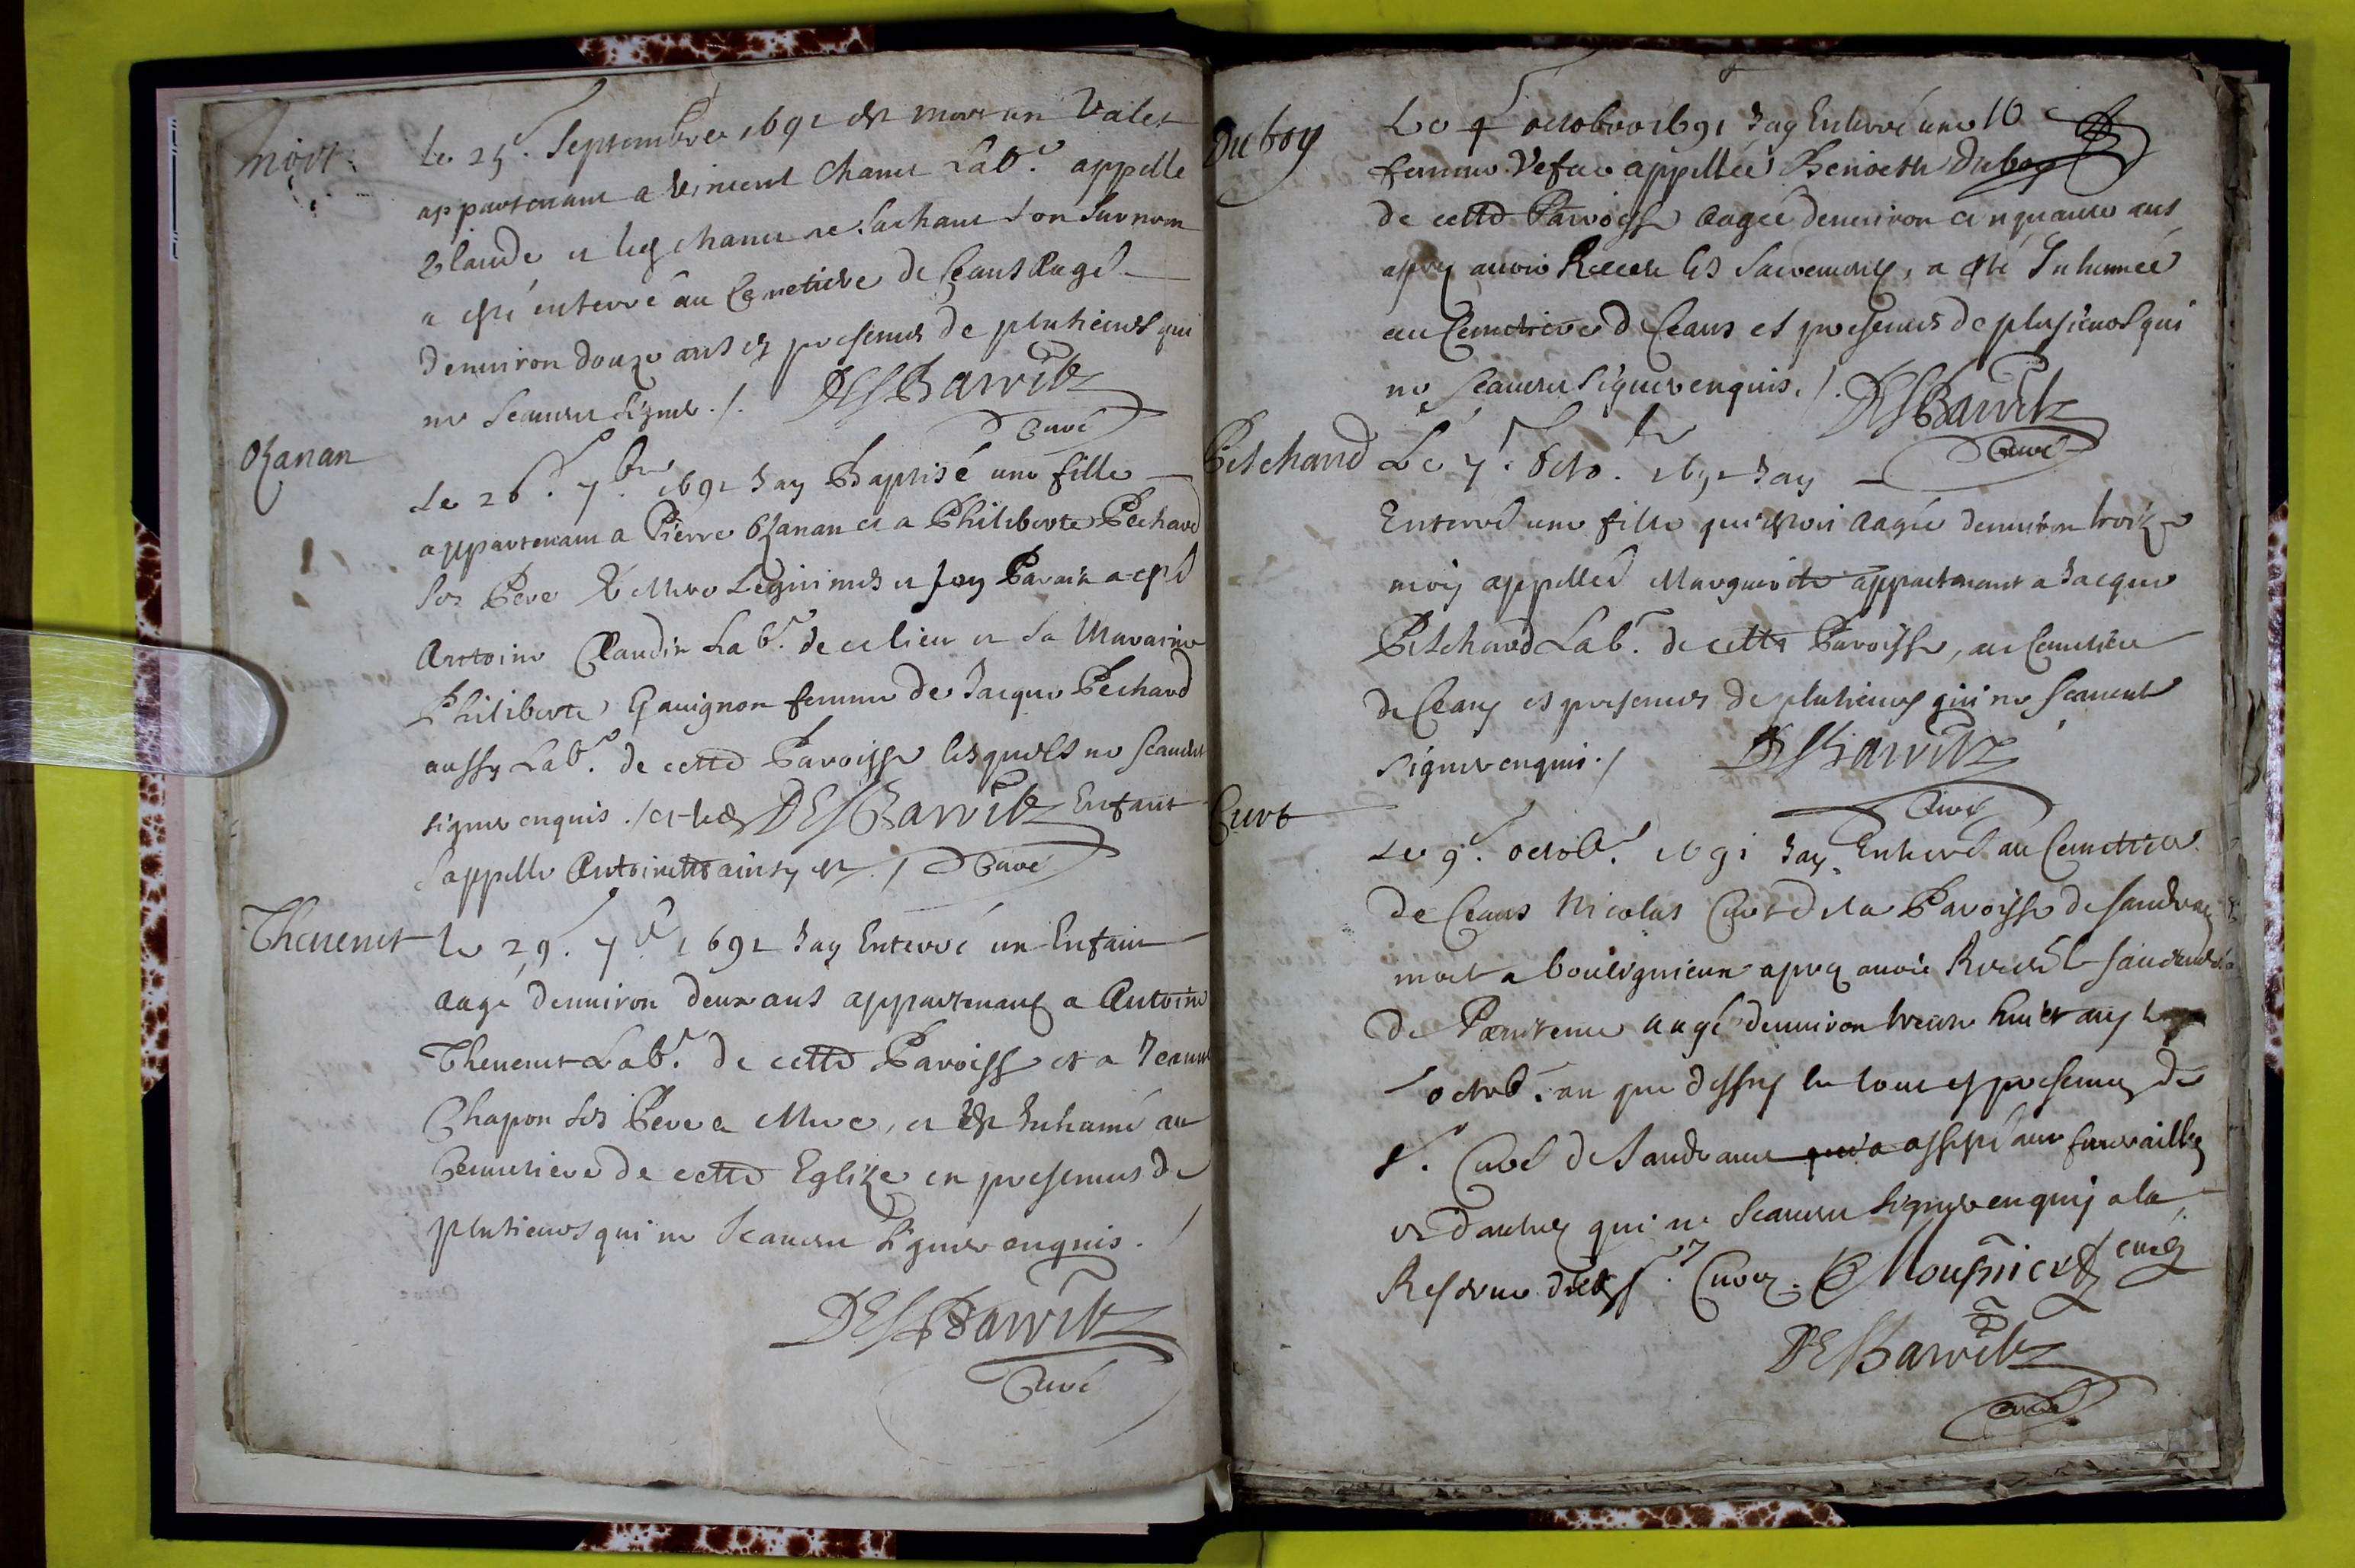 mort
Le 25e. Septembre 1691 est mort un Valet
appartenant a Vincent Chanet Lab.r appelle
Claude et led chanet ne Sachant Son Surnom
a esté enterré au Cemetiere de Ceans Aagé
denuiron douze ans es presences de plusieurs qui
ne Scauent signer ./.
DESBarritz
Curé
Ozanan
Le 26e. 7.bre 1691 Jay Baptisé une fille
appartenant a Pierre Ozanan et a Philiberte Pechard
Ses Pere & Mere Legitimes et son Parain a esté
Antoine Claudin Lab.r de ce lieu et Sa Maraine
Philiberte Gauignon femme de Jacque Pechard
aussy Lab.r de cette Paroisse lesquels ne Scauent
signer enquis ./ et led DESBarritz Enfant
Sappelle Antoinette ainsy est ./ Curé
Theuenet
le 29e. 7.e 1691 Jay Enterré un Enfant
aagé denuiron deux ans appartenant a Antoine
Theuenet Lab.r de cette Paroisse et a Jeanne
Chapon Ses Pere & Mere, et est Inhumé au
Cemetiere de cette Eglize en presences de
plusieurs qui ne Scauent Signer enquis ./
DESBarritz
Curé
Duboy
Le 4e octobre 1691 Jay Enterré une 10
femme Vefue appellée Benoette Duboy
de cette Paroisse Aagée denuiron cinquante ans
apres auoir Receu les Sacements, a esté Inhumée
au Cemetiere de Ceans es presences de plusieurs qui
ne Scauent Signer enquis ./. DESBarritz
Curé
Petchard
Le 7e. Octo.bre 1691 Jay
Enterré une fille qui estoit Aagée denuiron treize
mois appellée Marguerite appartenant a Jacque
Petchard Lab.r de cette Paroisse, au Cemetiere
de Ceans es presences de plusieurs qui ne Scauent
Signer enquis ./ DESBarritz
Curé
Curt
Le 9e. octob.e 1691 Jay Enterré au Cemettiere
de Ceans Nicolas Curt de la Paroisse de Sandran
mort a bouligneux apres auoir Receu le Sacrement
de Pænitence Aagé denuiron trente huict ans
octob. an que dessus le tout es presences du
Sr. Curé de Sandrans qui a assisté aux funerailles
et dautres qui ne Scauent Signer enquis a la
Reserue dud Sr. Curé. Mousnier curé
DESBarritz
curé